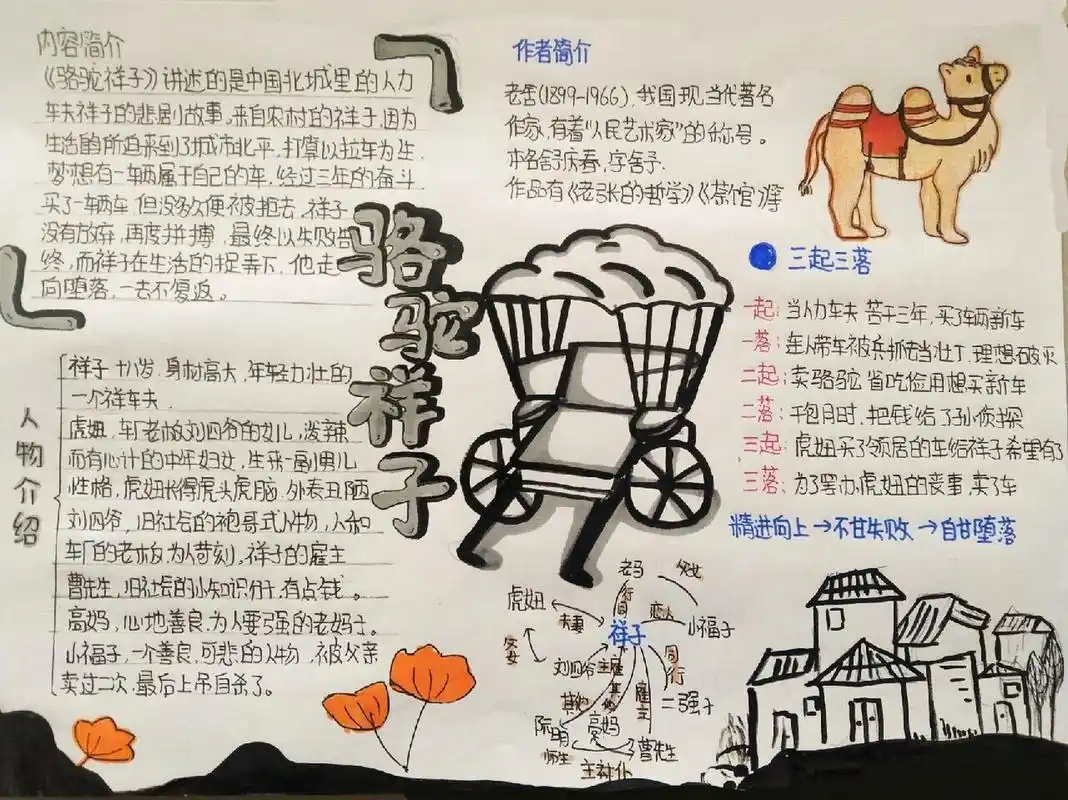 内容简介
《骆驼祥子》讲述的是中国北城里的人力
车夫祥子的悲剧故事。来自农村的祥子,因为
生活的所迫来到了城市北平,打算以拉车为生,
梦想有一辆属于自己的车,经过三年的奋斗
买了一辆车 但没多久便被抢去,祥子
没有放弃,再度拼搏,最终以失败告
终,而祥子在生活的捉弄下,他走
向堕落,一去不复返。
作者简介
老舍(1899-1966),我国现当代著名
作家,有着“人民艺术家”的称号。
本名舒庆春,字舍予.
作品有《老张的哲学》《茶馆》等
骆驼祥子
三起三落
一起:当人力车夫 苦干三年,买了辆新车
一落:连人带车被兵抓去当壮丁.理想破灭
二起:卖骆驼,省吃俭用想买新车
二落:干包月时,把钱给了孙侦探
三起:虎妞买了领居的车给祥子希望有了
三落:为了置办虎妞的丧事,卖了车
精进向上→不甘失败→自甘堕落
人物介绍
祥子 十八岁.身材高大,年轻力壮的
一个祥车夫.
虎妞,车厂老板刘四爷的女儿,泼辣
而有心计的中年妇女,生来一副男儿
性格,虎妞长得虎头虎脑.外表丑陋
刘四爷,旧社会的袍哥式人物,人和
车厂的老板.为人苛刻,祥子的雇主
曹先生,旧社会的小知识分子,有点钱。
高妈,心地善良.为人要强的老妈子。
小福子,一个善良,可悲的人物,被父亲
卖过二次,最后上吊自杀了。
老马
同行
虎妞
夫妻
恋人
小福子
祥子
父女
刘四爷
主雇
同行
二强子
雇主
其他
高妈
曹先生
师生
主仆